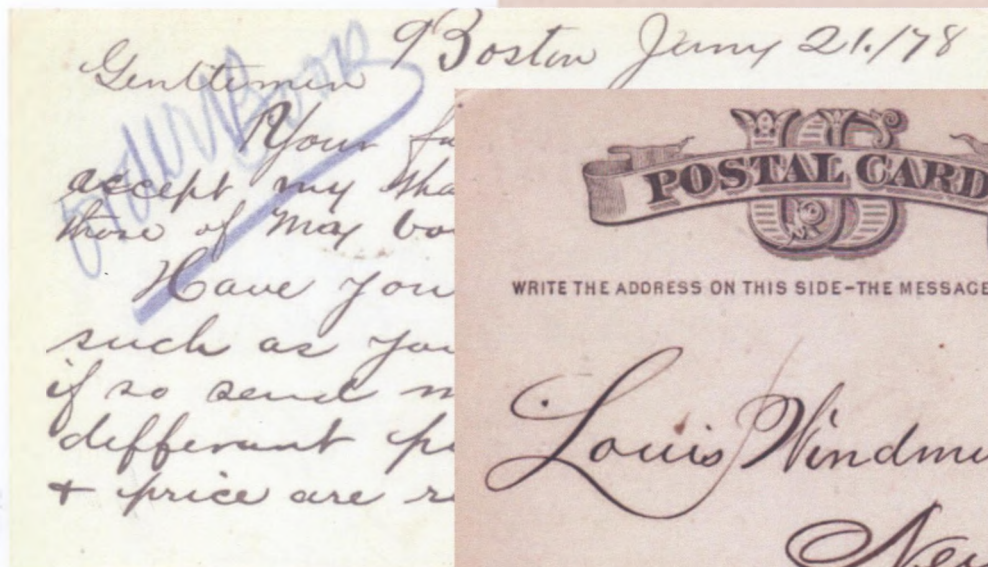 Boston Jany 21./78
Gentlemen
Your fa
accept my tha
those of May bo
Have you
such as you
if so send m
different p
& price are r
US
POSTAL CARD
WRITE THE ADDRESS ON THIS SIDE–THE MESSAGE
Louis Windmu
New